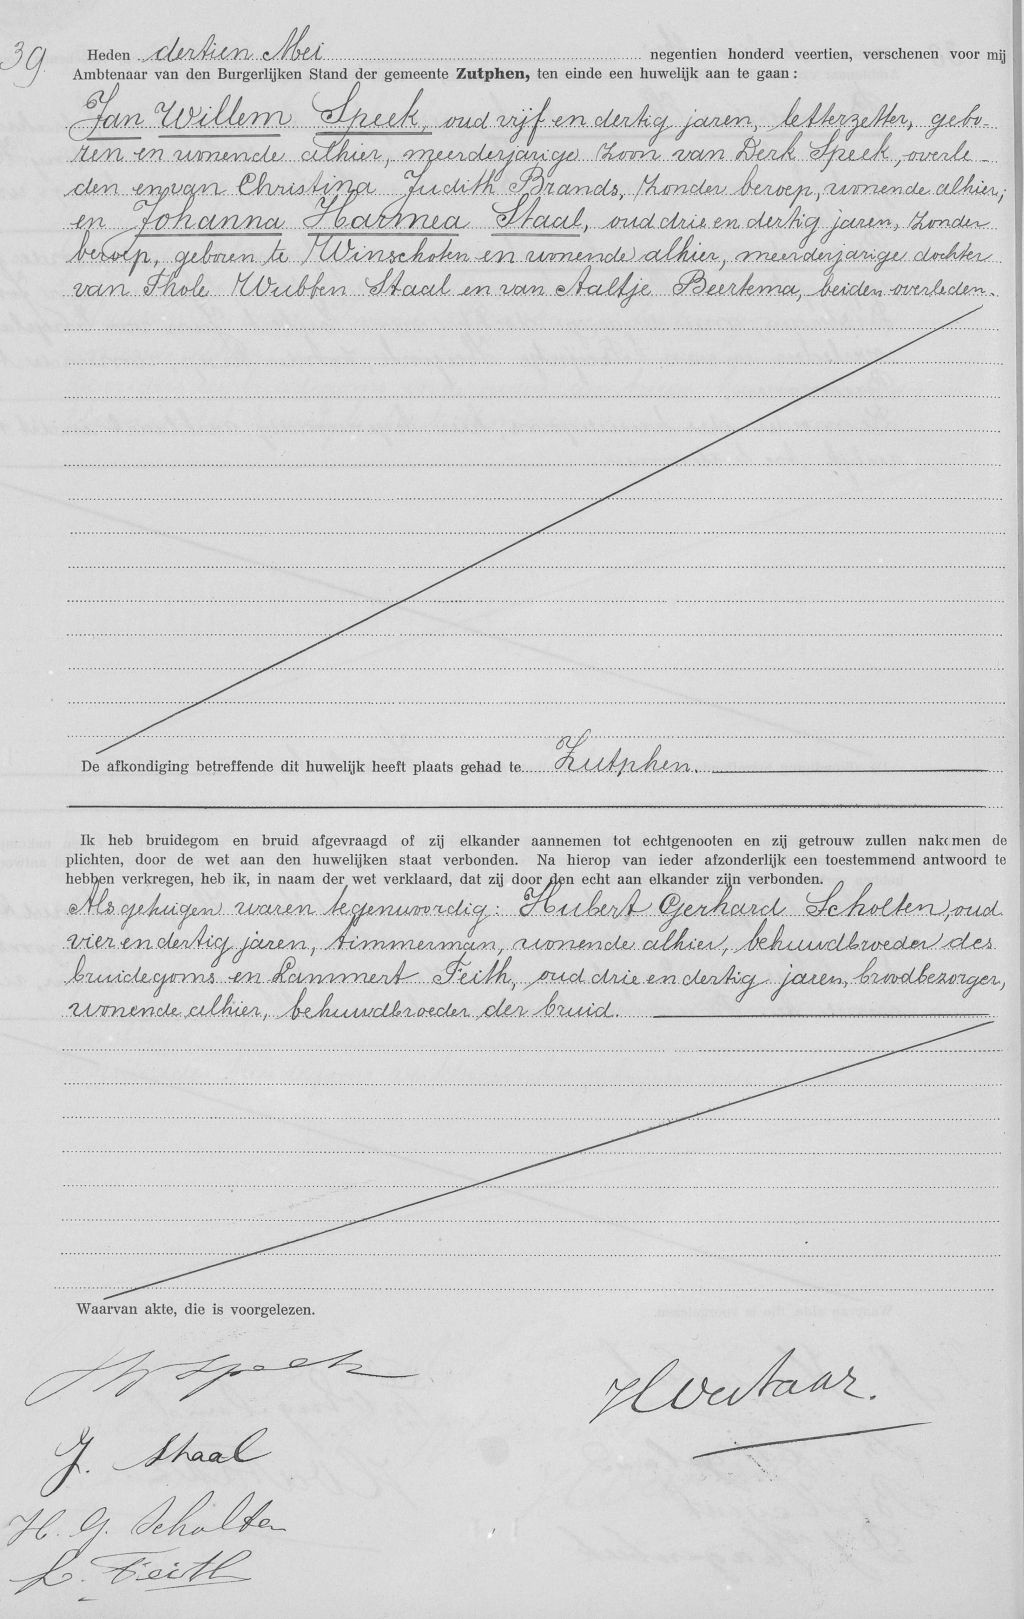 39.
Heden dertien Mei negentien honderd veertien, verschenen voor mij
Ambtenaar van den Burgerlijken Stand der gemeente Zutphen, ten einde een huwelijk aan te gaan:
Jan Willem Speek, oud vijf en dertig jaren, letterzetter, gebo-
ren en wonende alhier, meerderjarige zoon van Derk Speek, overle-
den en van Christina Judith Brands, zonder beroep, wonende alhier;
en Johanna Harmea Staal, oud drie en dertig jaren, zonder
beroep, geboren te Winschoten en wonende alhier, meerderjarige dochter
van Thole Wubben Staal en van Aaltje Beertema, beiden overleden.
De afkondiging betreffende dit huwelijk heeft plaats gehad te Zutphen.
Ik heb bruidegom en bruid afgevraagd of zij elkander aannemen tot echtgenooten en zij getrouw zullen nakomen de
plichten, door de wet aan den huwelijken staat verbonden. Na hierop van ieder afzonderlijk een toestemmend antwoord te
hebben verkregen, heb ik, in naam der wet verklaard, dat zij door den echt aan elkander zijn verbonden.
Als getuigen waren tegenwoordig: Hubert Gerhard Scholten, oud
vier en dertig jaren, timmerman, wonende alhier, behuwdbroeder des
bruidegoms en Lammert Feith, oud drie en dertig jaren, broodbezorger,
wonende alhier, behuwdbroeder der bruid.
Waarvan akte, die is voorgelezen.
Speek
J. Staal
H. G. Scholten
L. Feith